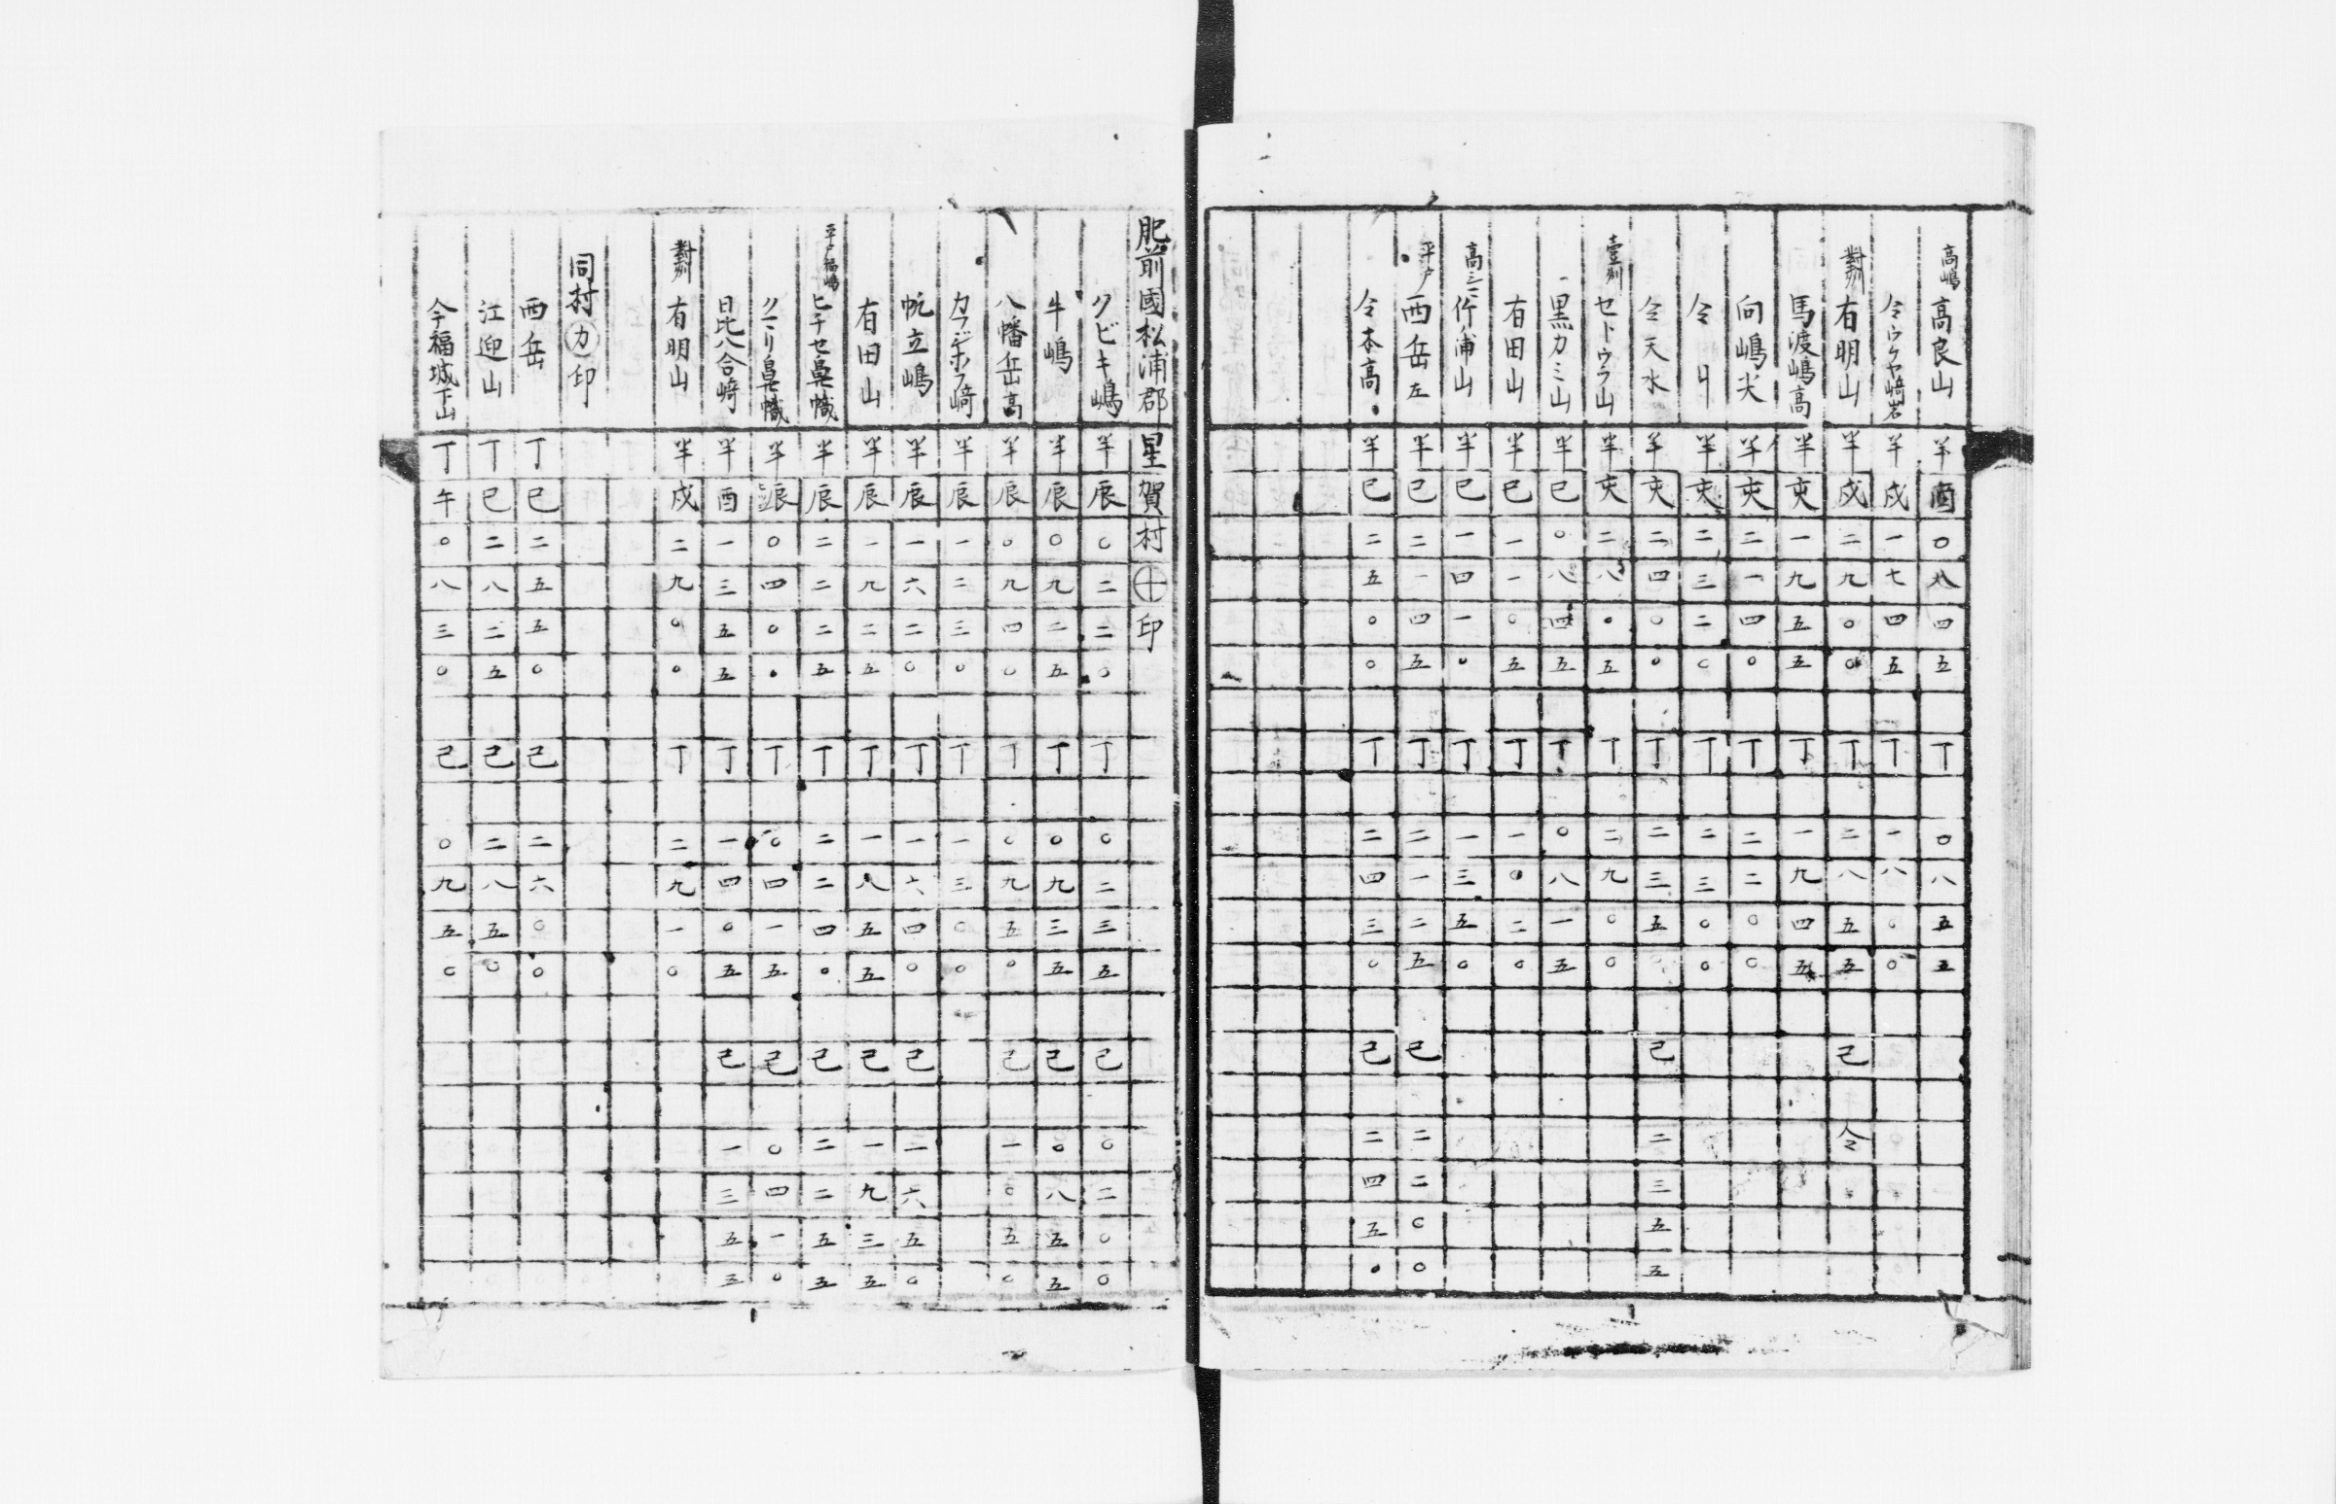 高嶋 高良山 半 酉 〇 八 四 五 丁 〇 八 五 五
仝 ウケヤ崎岩 半 戍 一 七 四 五 丁 一 八 〇 〇
對州 有明山 半 戍 二 九 〇 〇 丁 二 八 五 五 己 仝
馬渡嶋高 半 亥 一 九 五 五 丁 一 九 四 五
向嶋尖 半 亥 二 一 四 〇 丁 二 二 〇 〇
仝 リ 半 亥 二 三 二 〇 丁 二 三 〇 〇
仝 天水 半 亥 二 四 〇 〇 丁 二 三 五 己 二 三 五 五
壹州 セトウラ山 半 亥 二 八 〇 五 丁 二 九 〇 〇
黒カミ山 半 巳 〇 八 四 五 丁 〇 八 一 五
有田山 半 巳 一 一 〇 五 丁 一 〇 二 〇
浦山 半 巳 一 四 一 〇 丁 一 三 五 〇
平戸 西岳 左 半 巳 二 一 四 五 丁 二 一 二 五 己 二 二 〇 〇
仝 本高 半 巳 二 五 〇 〇 丁 二 四 三 〇 己 二 四 五 〇
肥前國松浦郡星賀村㊉印
クビキ嶋 半 辰 〇 二 二 〇 丁 〇 二 三 五 己 〇 二 〇 〇
牛嶋 半 辰 〇 九 二 五 丁 〇 九 三 五 己 〇 八 五 五
八幡岳高 半 辰 〇 九 四 〇 丁 〇 九 五 〇 己 一 〇 五 〇
半 辰 一 二 三 〇 丁 一 三 〇 〇
帆立嶋 半 辰 一 六 二 〇 丁 一 六 四 〇 己 一 六 五 〇
有田山 半 辰 一 九 二 五 丁 一 八 五 五 己 一 九 三 五
平戸福嶋 ヒチセ鼻幟 半 辰 二 二 二 五 丁 二 二 四 〇 己 二 二 五 五
鼻幟 半 辰 〇 四 〇 〇 丁 〇 四 一 五 己 〇 四 一 〇
昆比合崎 半 酉 一 三 五 五 丁 一 四 〇 五 己 一 三 五 五
對州 有明山 半 戍 二 九 〇 〇 丁 二 九 一 〇
同村㋕印
西岳 丁 巳 二 五 五 〇 己 二 六 〇 〇
江迎山 丁 巳 二 八 二 五 己 二 八 五 〇
今福城下山 丁 午 〇 八 三 〇 己 〇 九 五 〇